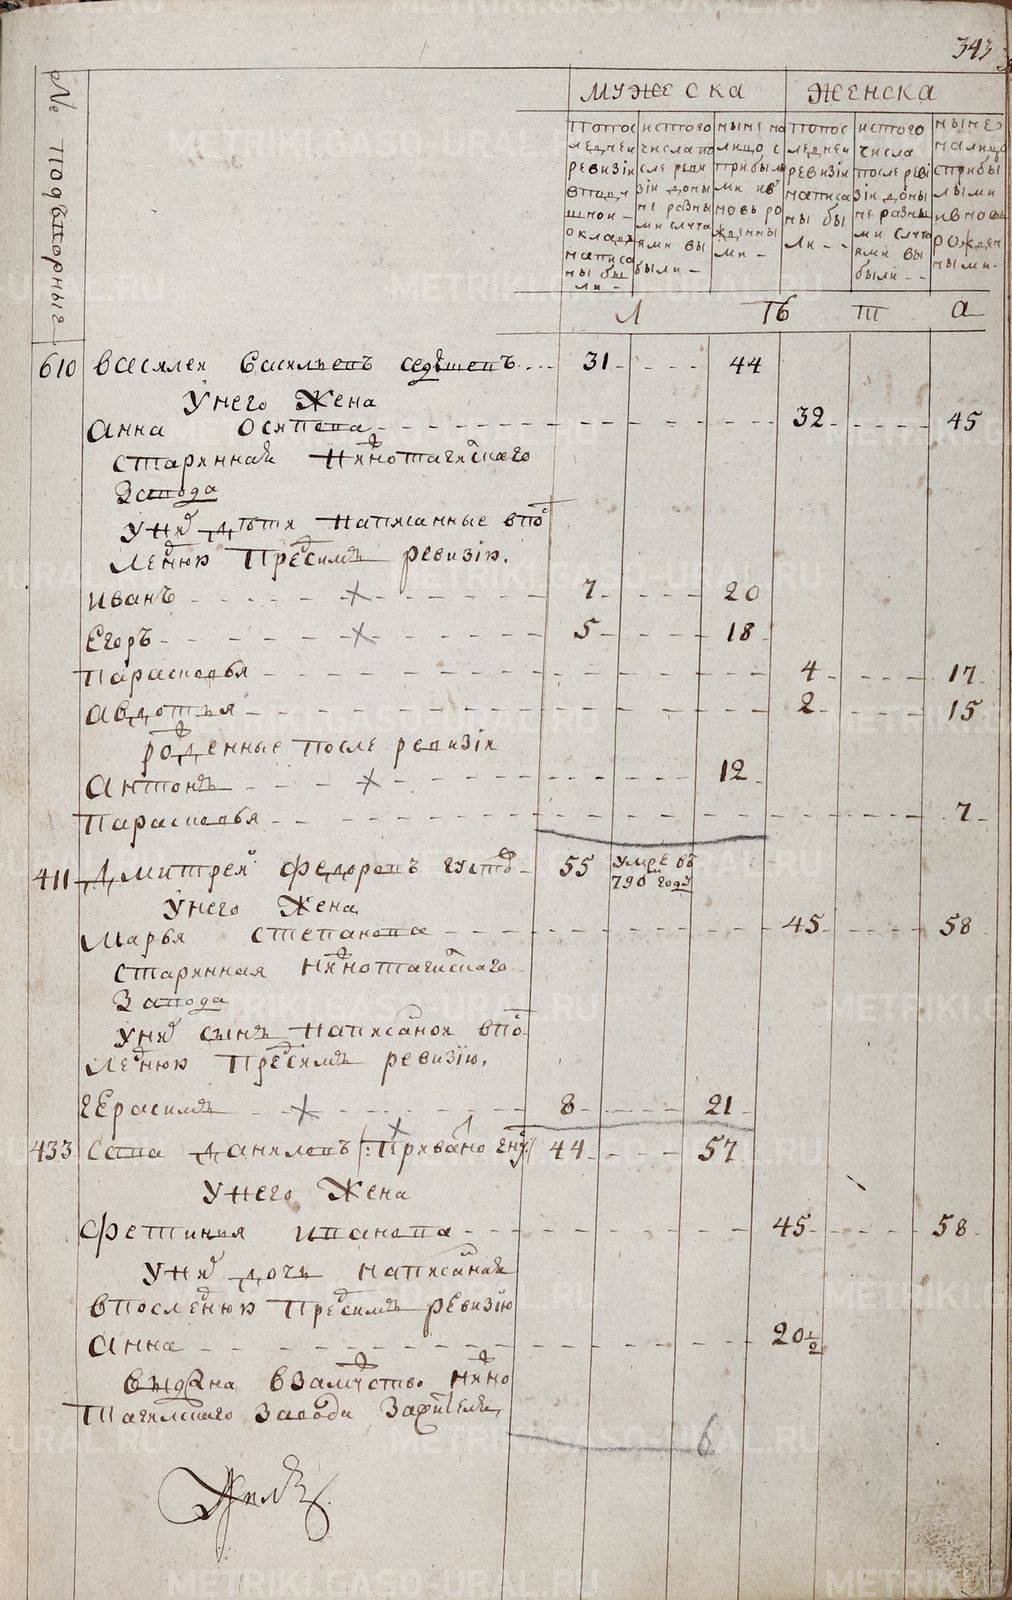 343
№ подворные
МУЖЕСКА
ЖЕНСКА
Попос
ледней
ревизіи
вподу
шной -
окладъ
написа
ны бы
ли -
истого
числа по
сле реви
зіи доны
не разны
ми случа
ями вы
были -
ныне на
лицо с
прибылы
ми ив
новь ро
жденны
ми -
Попос
ледней
ревизіи
написа
ны бы
ли - -
истого
числа
после реві
зіи доны
не разны
ми случа
ями вы
были - -
ныне
налицо
сприбы
лыми
ивновь
рожден
ными.
Л Ѣ Т а
610 Василеи Васильевъ седышевъ 31 44
У него Жена
Анна Осипова 32 45
старинная Нижнотагилскаго
Завода
У них дѣти написанные впо
следнюю Пред симъ ревизію.
Иванъ 7 20
Егоръ 5 18
Парасковья 4 17
Авдотья 2 15
рожденные после ревизіи
Антонъ 12
Парасковья 7
411 Дмитреи Федоровъ 55 умре въ
790 году
У него Жена
Марья Степанова 45 58
старинная нижнотагилскаго
Завода
У них сынъ написанои впо
следнюю Пред симъ ревизїю,
Герасимъ 8 21
433 Сава Даниловъ 44 57
У него Жена
Фетинья ивановна 45 58
У них дочь написанная
впоследнюю Пред симъ ревизію
Анна 20½
выдана взамужство нижно
Тагилскаго Завода За жителя
6